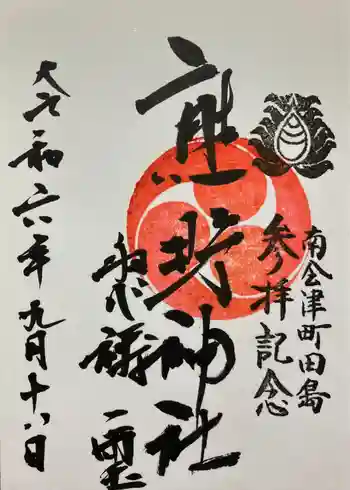 南会津町田島
参拝記念
熊野神社
令和六年九月十八日